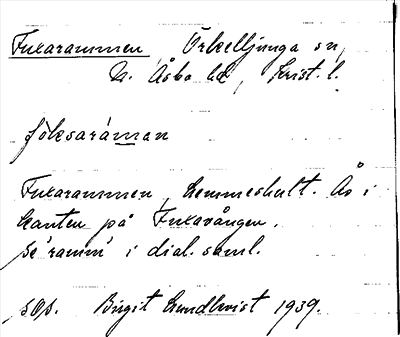 Fuxarammen Örkelljunga sn,
N. Åsbo hd, Krist. l.
föksaráman
Fuxarammen, Hemmeshult. Äs i
kanten på Fuxavången.
se 'ramm' i dial.saml.
SOs. Birgit Lundkvist 1939.